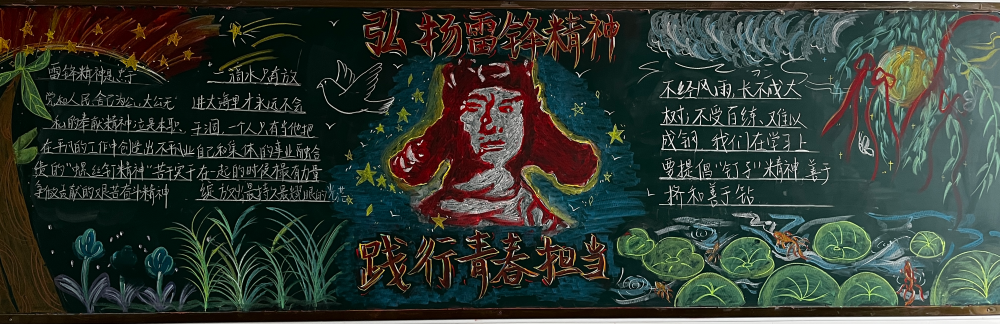 弘扬雷锋精神
雷锋精神忠于
党和人民,舍己为公,大公无
私的奉献精神;这是本职,
在平凡的工作中创造出不平凡
绩的"螺丝钉精神"苦于
争放贡献的艰苦奋斗精神
一滴水只有放
进大海里才永远不会
干涸,一个人只有当他把
自己和集体的事业融合
在一起的时候才最有力量
不经风雨,长不成大
树;不受百练,难以
成钢,我们在学习上
要提倡"钉子"精神,善于
挤和善于钻
践行青春担当